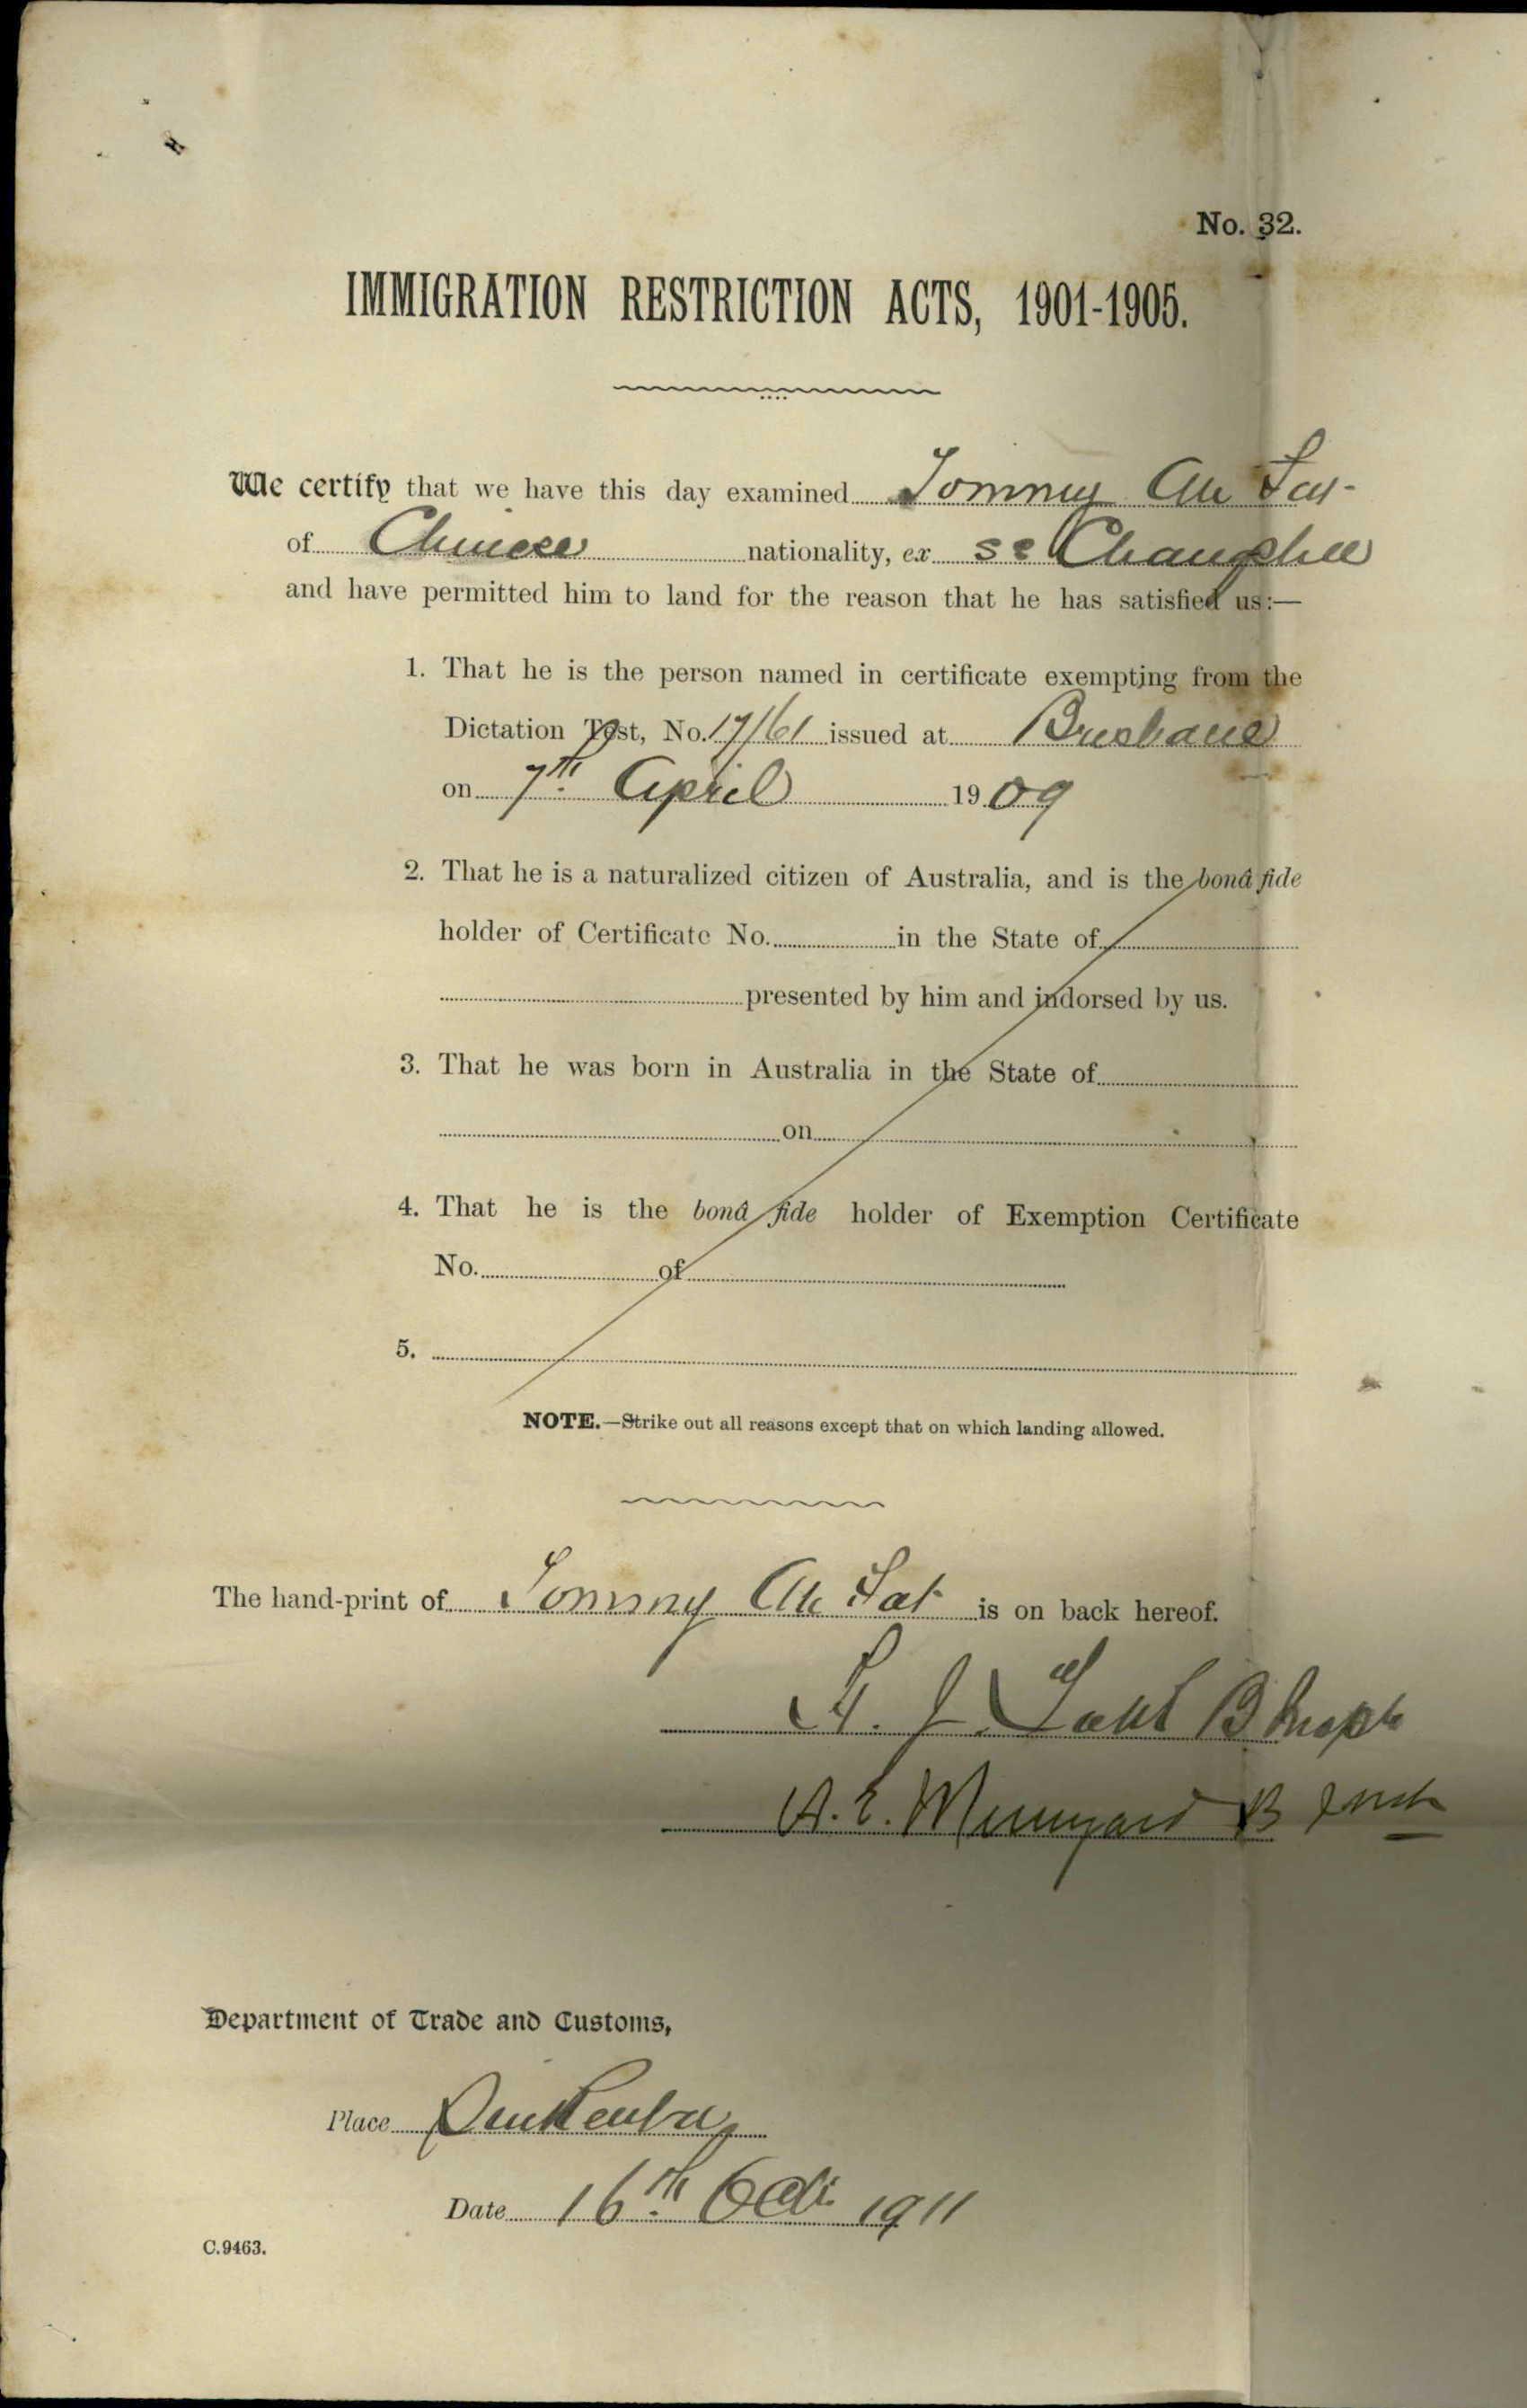 No. 32.
IMMIGRATION RESTRICTION ACTS, 1901-1905.
We certify that we have this day examined Tommy Ah Fat
of Chinese nationality, ex SS Changsha
and have permitted him to land for the reason that he has satisfied us:—
1. That he is the person named in certificate exempting from the
Dictation Test, No. 17/161 issued at Brisbane
on 7th April 1909
2. That he is a naturalized citizen of Australia, and is the bonâ fide
holder of Certificate No. in the State of
presented by him and indorsed by us.
3. That he was born in Australia in the State of
on
4. That he is the bonâ fide holder of Exemption Certificate
No. of
5.
NOTE.—Strike out all reasons except that on which landing allowed.
The hand-print of Tommy Ah Fat is on back hereof.
J.
A. E.
Department of Trade and Customs,
Place Pinkenba
Date 16th Oct 1911
C.9463.